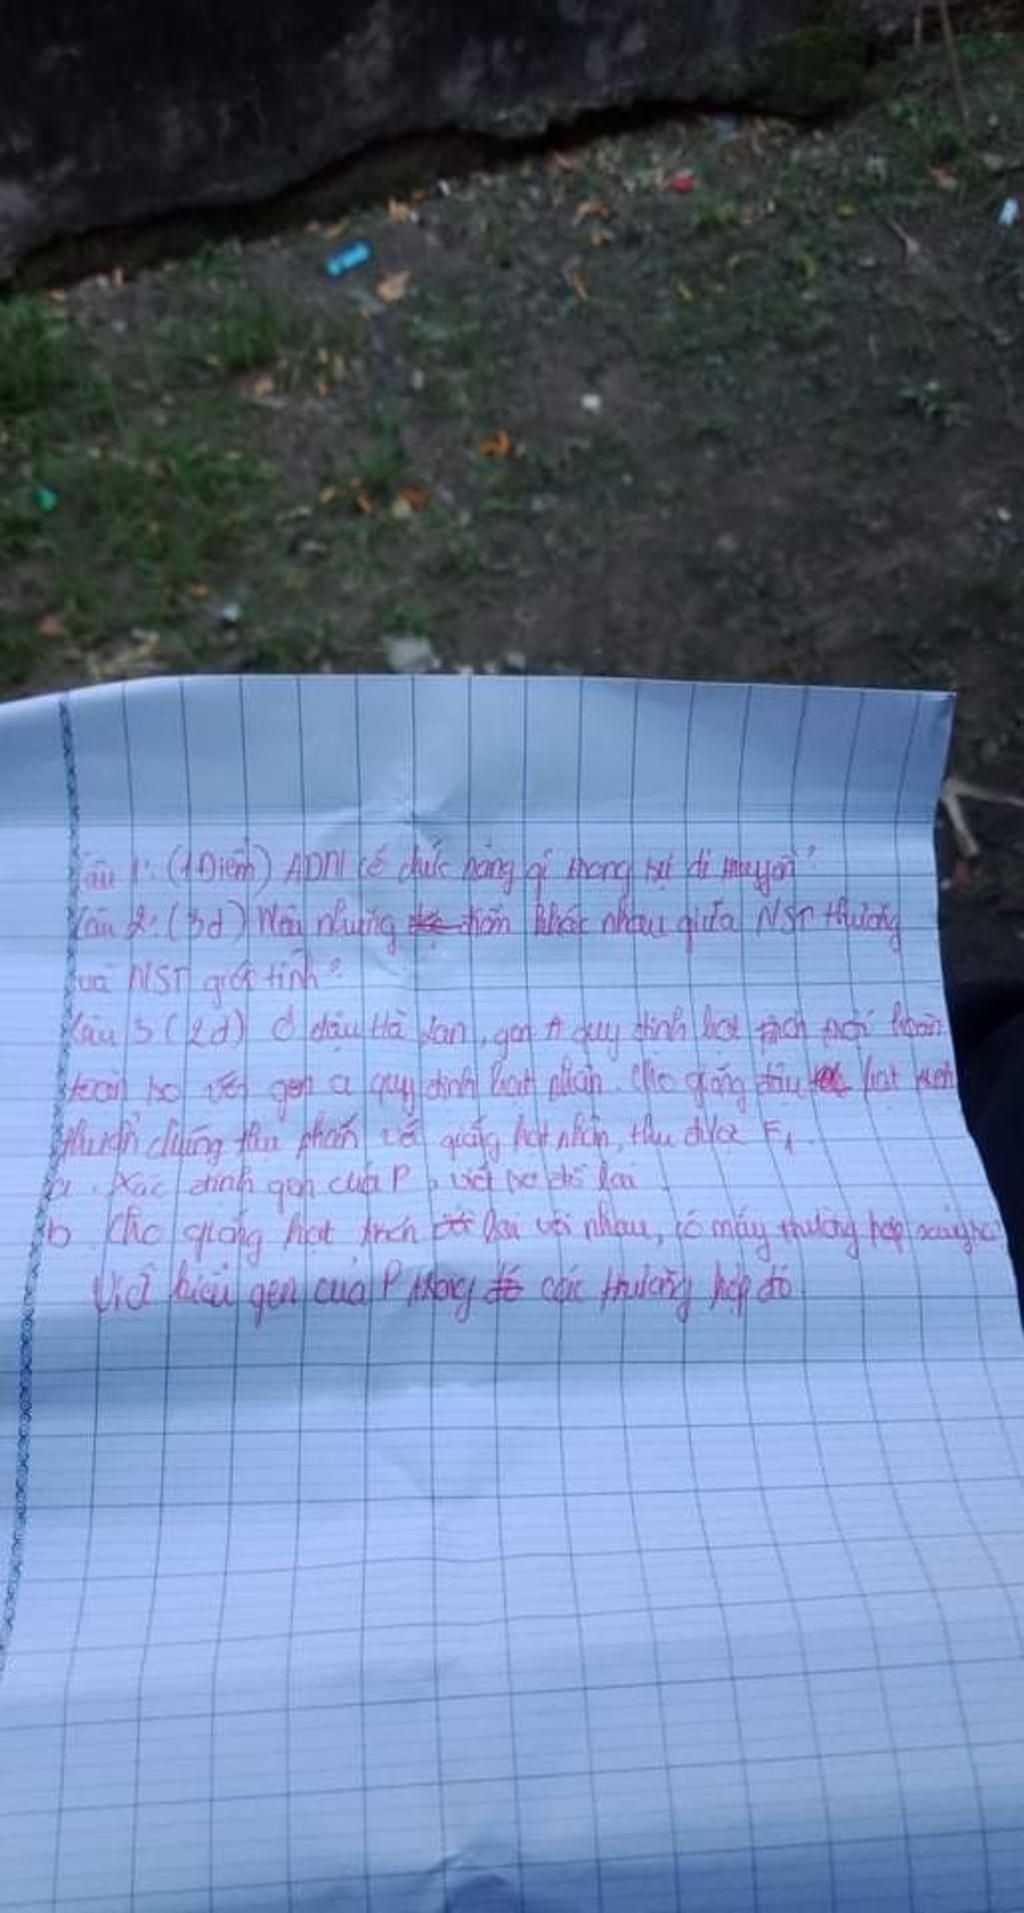 Câu 1: (1 Điểm) ADN có chức năng gì trong sự di truyền?
Câu 2: (3đ) Nêu những điểm khác nhau giữa NST thường
và NST giới tính?
Câu 3 (2đ) Ở đậu Hà Lan, gen A quy định hạt trơn trội hoàn
toàn so với gen a quy định hạt nhăn. Cho giống đậu hạt trơn
thuần chủng thụ phấn với giống hạt nhăn, thu được F1.
a. Xác định gen của P, viết sơ đồ lai.
b. Cho giống hạt trơn lai với nhau, có mấy trường hợp xảy
Viết kiểu gen của P trong các trường hợp đó.